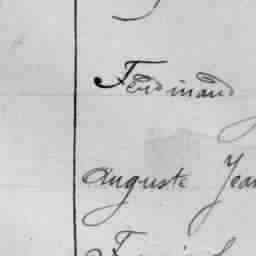 Ferdinand
Auguste Jean